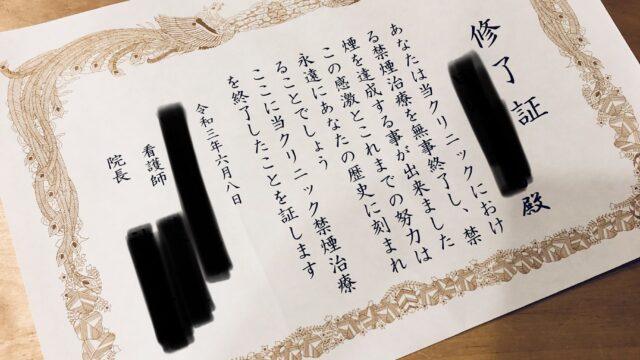 修了証
殿
あなたは当クリニックにおけ
る禁煙治療を無事終了し、禁
煙を達成する事が出来ました
この感激とこれまでの努力は
永遠にあなたの歴史に刻まれ
ることでしょう
ここに当クリニック禁煙治療
を終了したことを証します
令和三年六月八日
看護師
院長